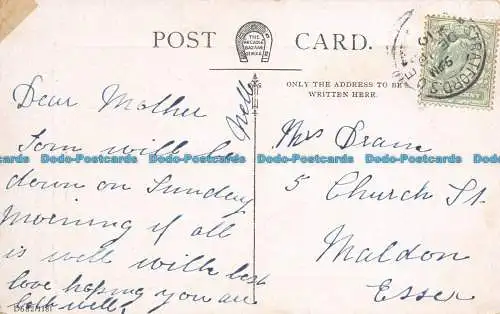 POST CARD.
THE
ARCADIA
BAZAAR
SERIES
ONLY THE ADDRESS TO BE
WRITTEN HERE.
STRATFORD S.O.
Dear Mother
Tom will be
down on Sunday
morning if all
is well with best
love hoping you are
both well
Nell
Mrs Dram
5 Church St.
Maldon
Essex
Dodo-Postcards Dodo-Postcards Dodo-Postcards Dodo-Postcards
Dodo-Postcards Dodo-Postcards Dodo-Postcards Dodo-Postcards